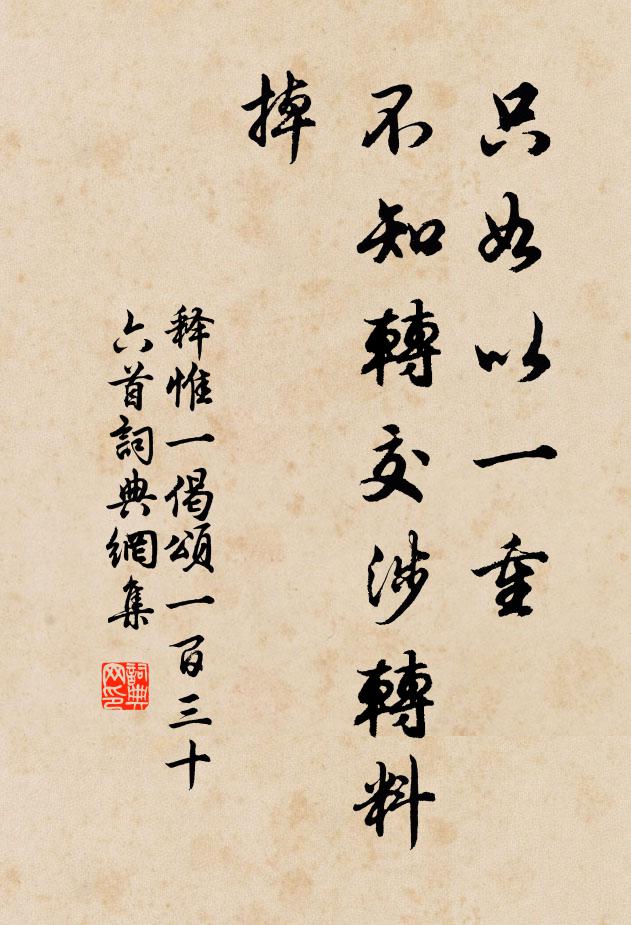 只如以一重
不知轉交涉轉料
掉
释惟一偈頌一百三十
六首詞典網集
詞典网印